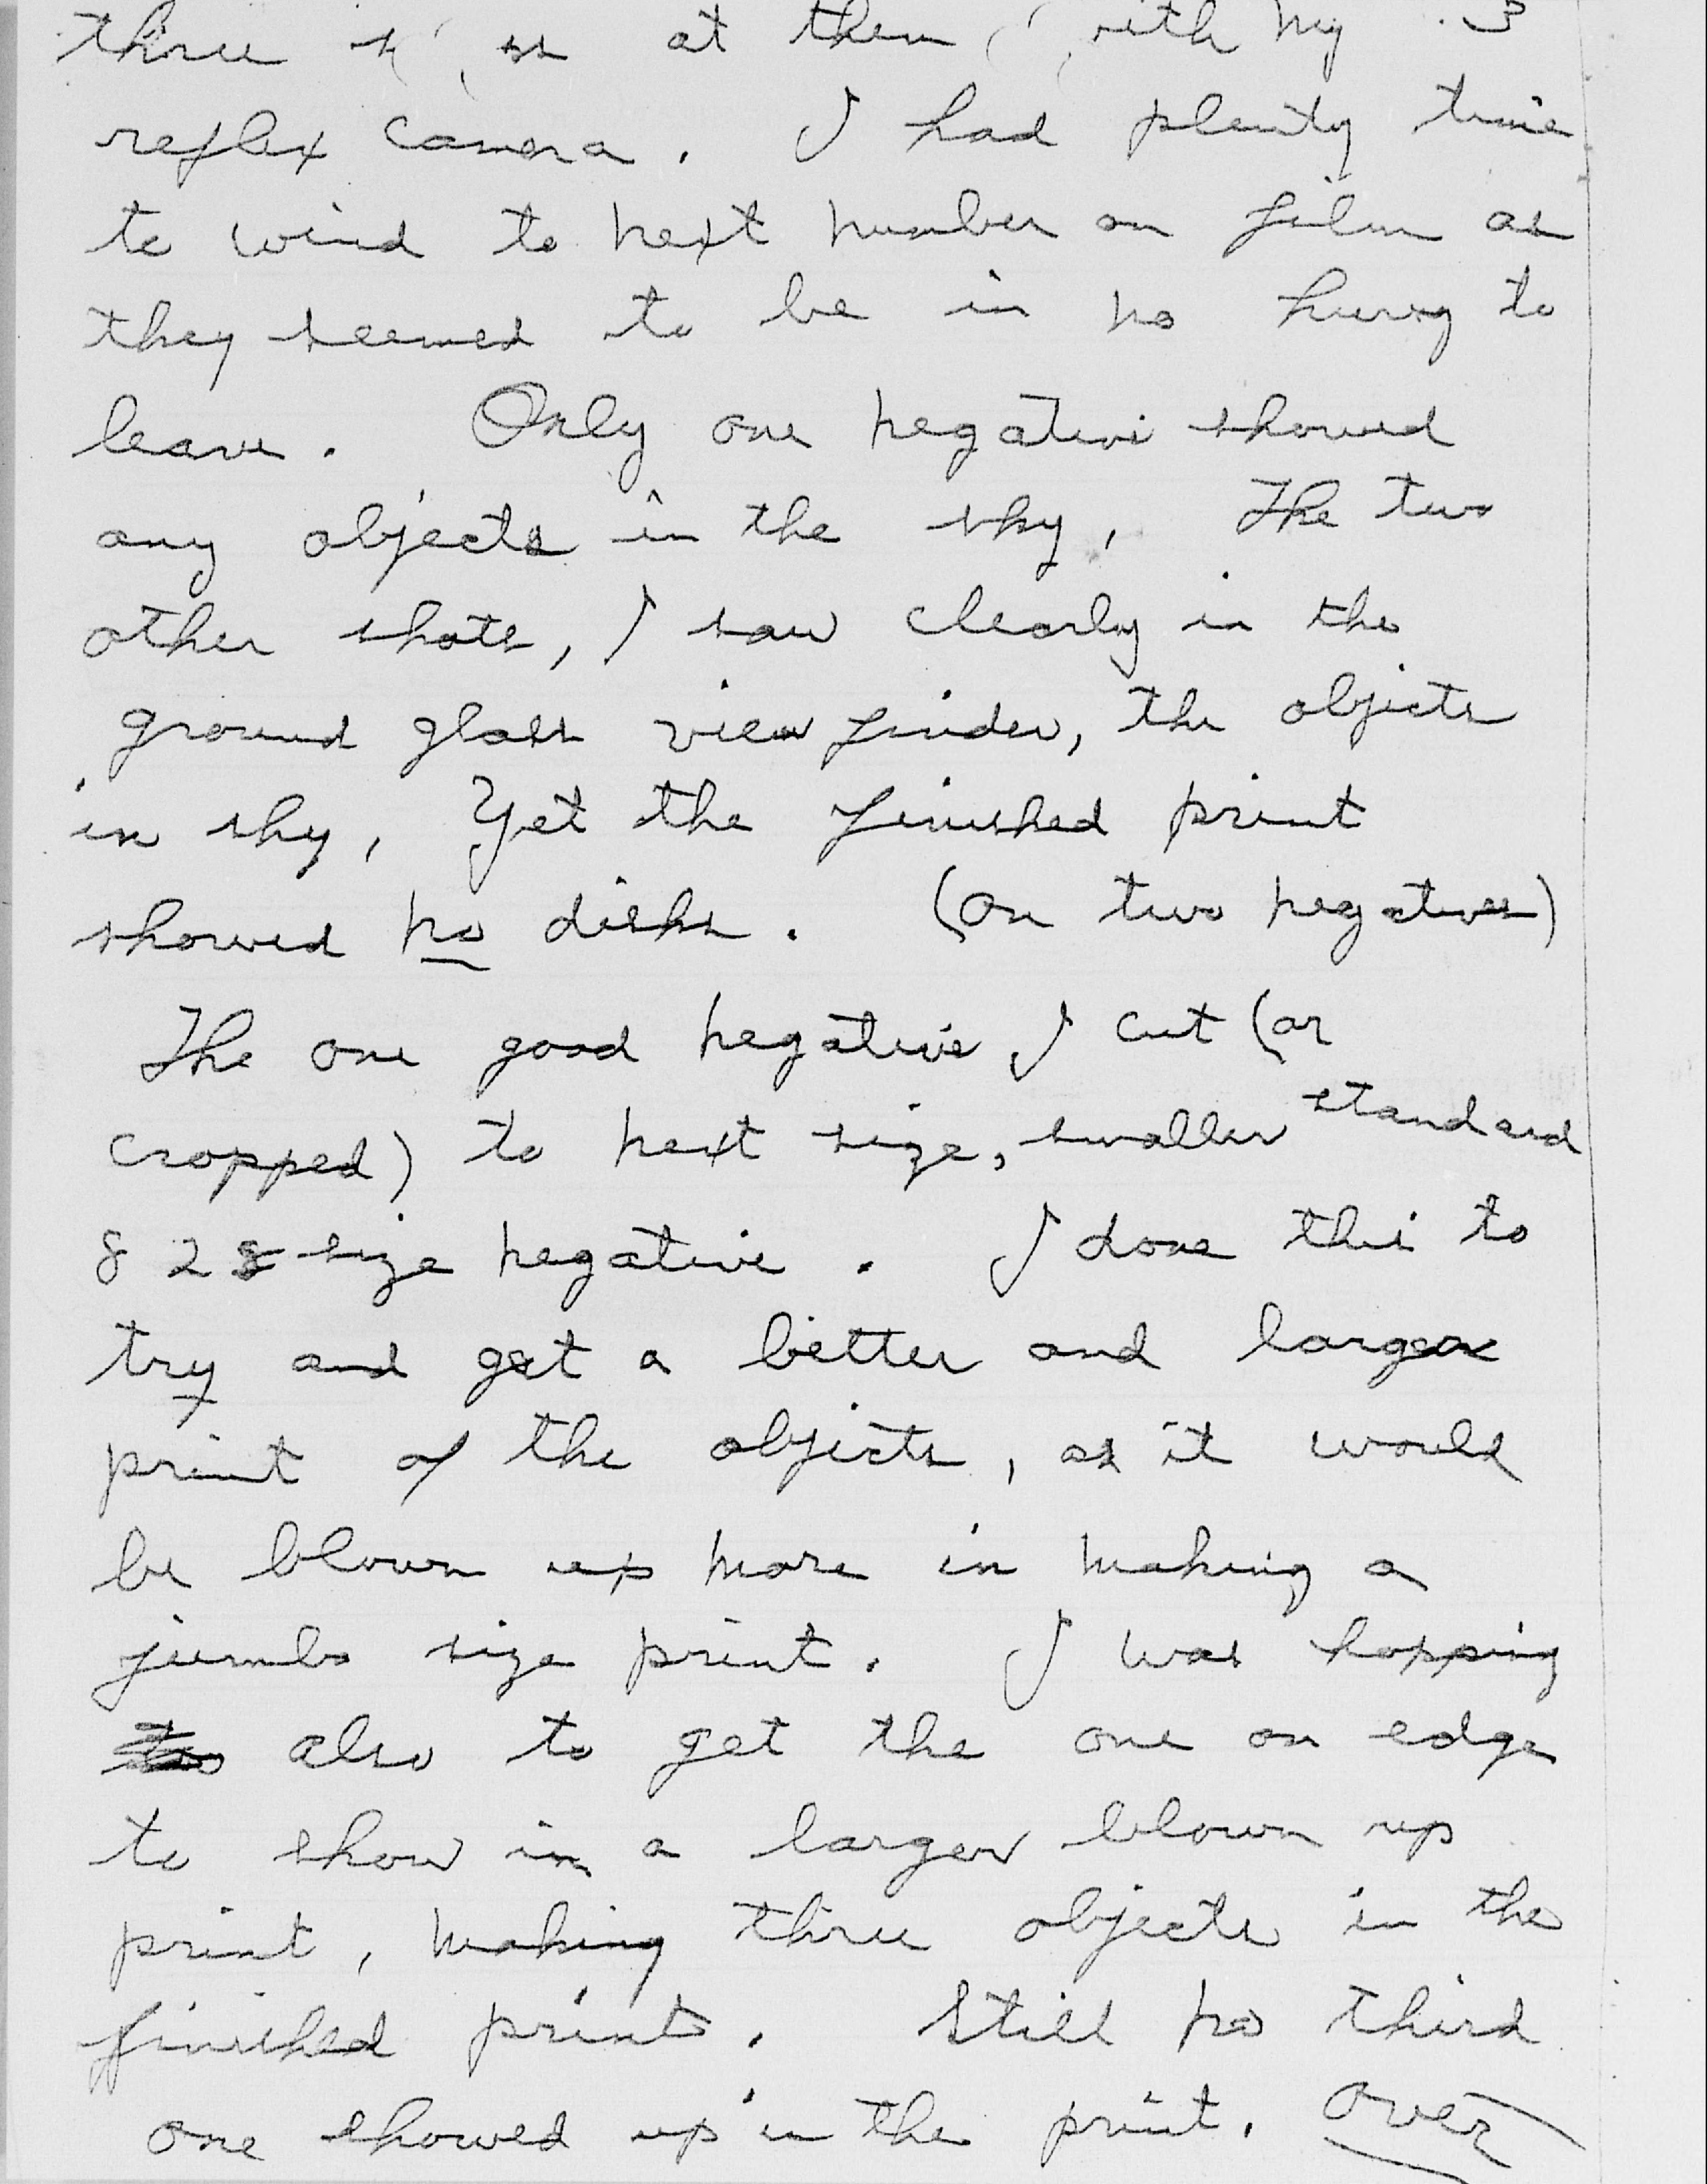 three at them with my 3
reflex camera. I had plenty time
to wind to next number on film as
they seemed to be in no hurry to
leave. Only one negative showed
any objects in the sky, The two
other shots, I saw clearly in the
ground glass view finder, the objects
in sky, Yet the finished print
showed no disks. (on two negatives)
The one good negative I cut (or
cropped) to next size, smaller standard
828 size negative. I done this to
try and get a better and larger
print of the objects, as it would
be blown up more in making a
jumbo size print. I was hopping
also to get the one on edge
to show in a larger blown up
print, making three objects in the
finished print. Still no third
one showed up in the print. over